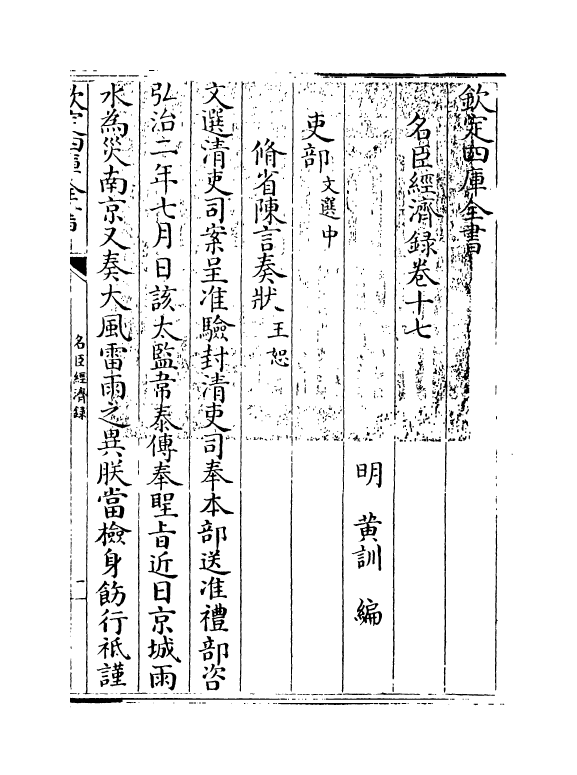 欽定四庫全書
名臣經濟錄卷十七
明 黄訓 編
吏部文選中
脩省陳言奏狀 王恕
文選清吏司案呈准驗封清吏司奉本部送准禮部咨
弘治二年七月日該太監韋泰傳奉聖旨近日京城雨
水為災南京又奏大風雷雨之異朕當檢身飭行祗謹
欽定四庫全書
名臣經濟錄
一